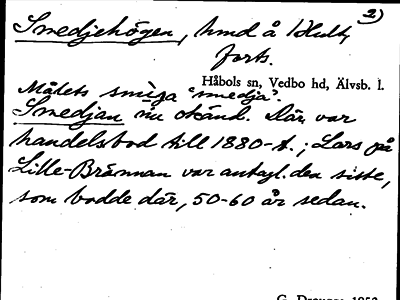 2)
Smedjehögen, hmd å Hult,
forts.
Håbols sn, Vedbo hd, Älvsb. l.
Målets smiga "smedja".
Smedjan nu okänd. Där var
handelsbod till 1880-t.; Lars på
Lille-Brännan var antagl. den siste,
som bodde där, 50-60 år sedan.